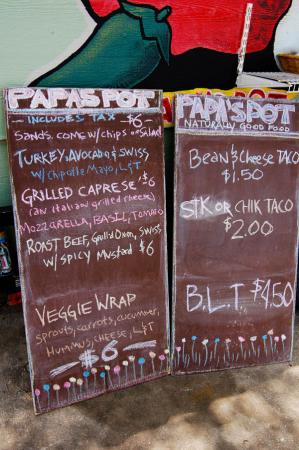 PAPASPOT
INCLUDES TAX $6
SANDS. COME W/CHIPS or SALAD!
TURKEY, AVOCADO & SWISS
W/ Chipotle Mayo, L&T
GRILLED CAPRESE $6
(an italian grilled cheese)
MOZZARELLA, BASIL, TOMATO
ROAST BEEF, Grill'd Onion, Swiss
W/ SPICY Mustard $6
VEGGIE WRAP
sprouts, carrots, cucumber,
HUMMUS, CHEESE, L&T
$6
PAPASPOT
NATURALLY GOOD FOOD
BEAN & CHEESE TACO
$1.50
STK OR CHIK TACO
$2.00
B.L.T $4.50